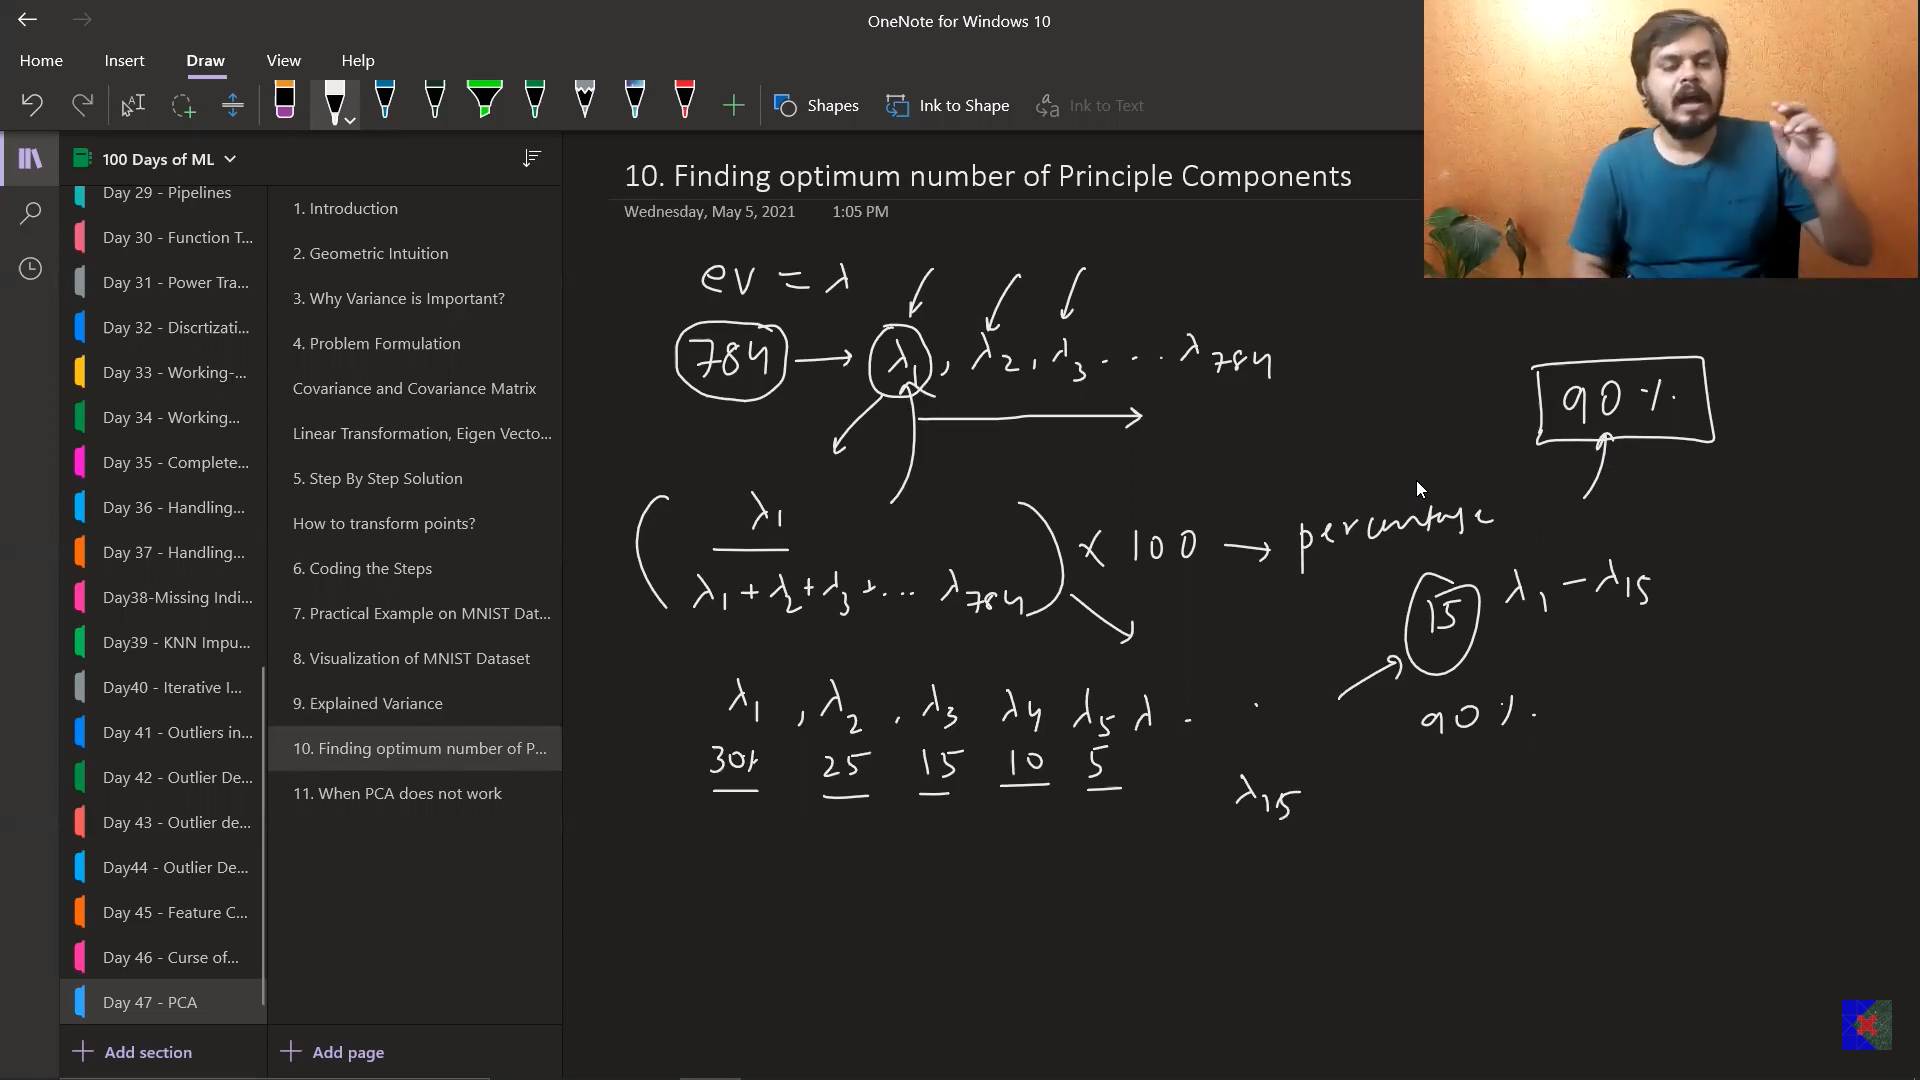 OneNote for Windows 10
Home Insert Draw View Help
Shapes Ink to Shape Ink to Text
100 Days of ML
Day 29 - Pipelines
Day 30 - Function T...
Day 31 - Power Tra...
Day 32 - Discrtizati...
Day 33 - Working-...
Day 34 - Working...
Day 35 - Complete...
Day 36 - Handling...
Day 37 - Handling...
Day38-Missing Indi...
Day39 - KNN Impu...
Day40 - Iterative I...
Day 41 - Outliers in...
Day 42 - Outlier De...
Day 43 - Outlier de...
Day44 - Outlier De...
Day 45 - Feature C...
Day 46 - Curse of...
Day 47 - PCA
Add section
1. Introduction
2. Geometric Intuition
3. Why Variance is Important?
4. Problem Formulation
Covariance and Covariance Matrix
Linear Transformation, Eigen Vecto...
5. Step By Step Solution
How to transform points?
6. Coding the Steps
7. Practical Example on MNIST Dat...
8. Visualization of MNIST Dataset
9. Explained Variance
10. Finding optimum number of P...
11. When PCA does not work
Add page
10. Finding optimum number of Principle Components
Wednesday, May 5, 2021 1:05 PM
ev = λ
784 → λ1, λ2, λ3 . . . . λ784
90 %
λ1
λ1 + λ2 + λ3 + ... λ784
× 100 → percentage
15 λ1 - λ15
90 %
λ1 , λ2 , λ3 λ4 λ5 λ . .
30% 25 15 10 5
λ15